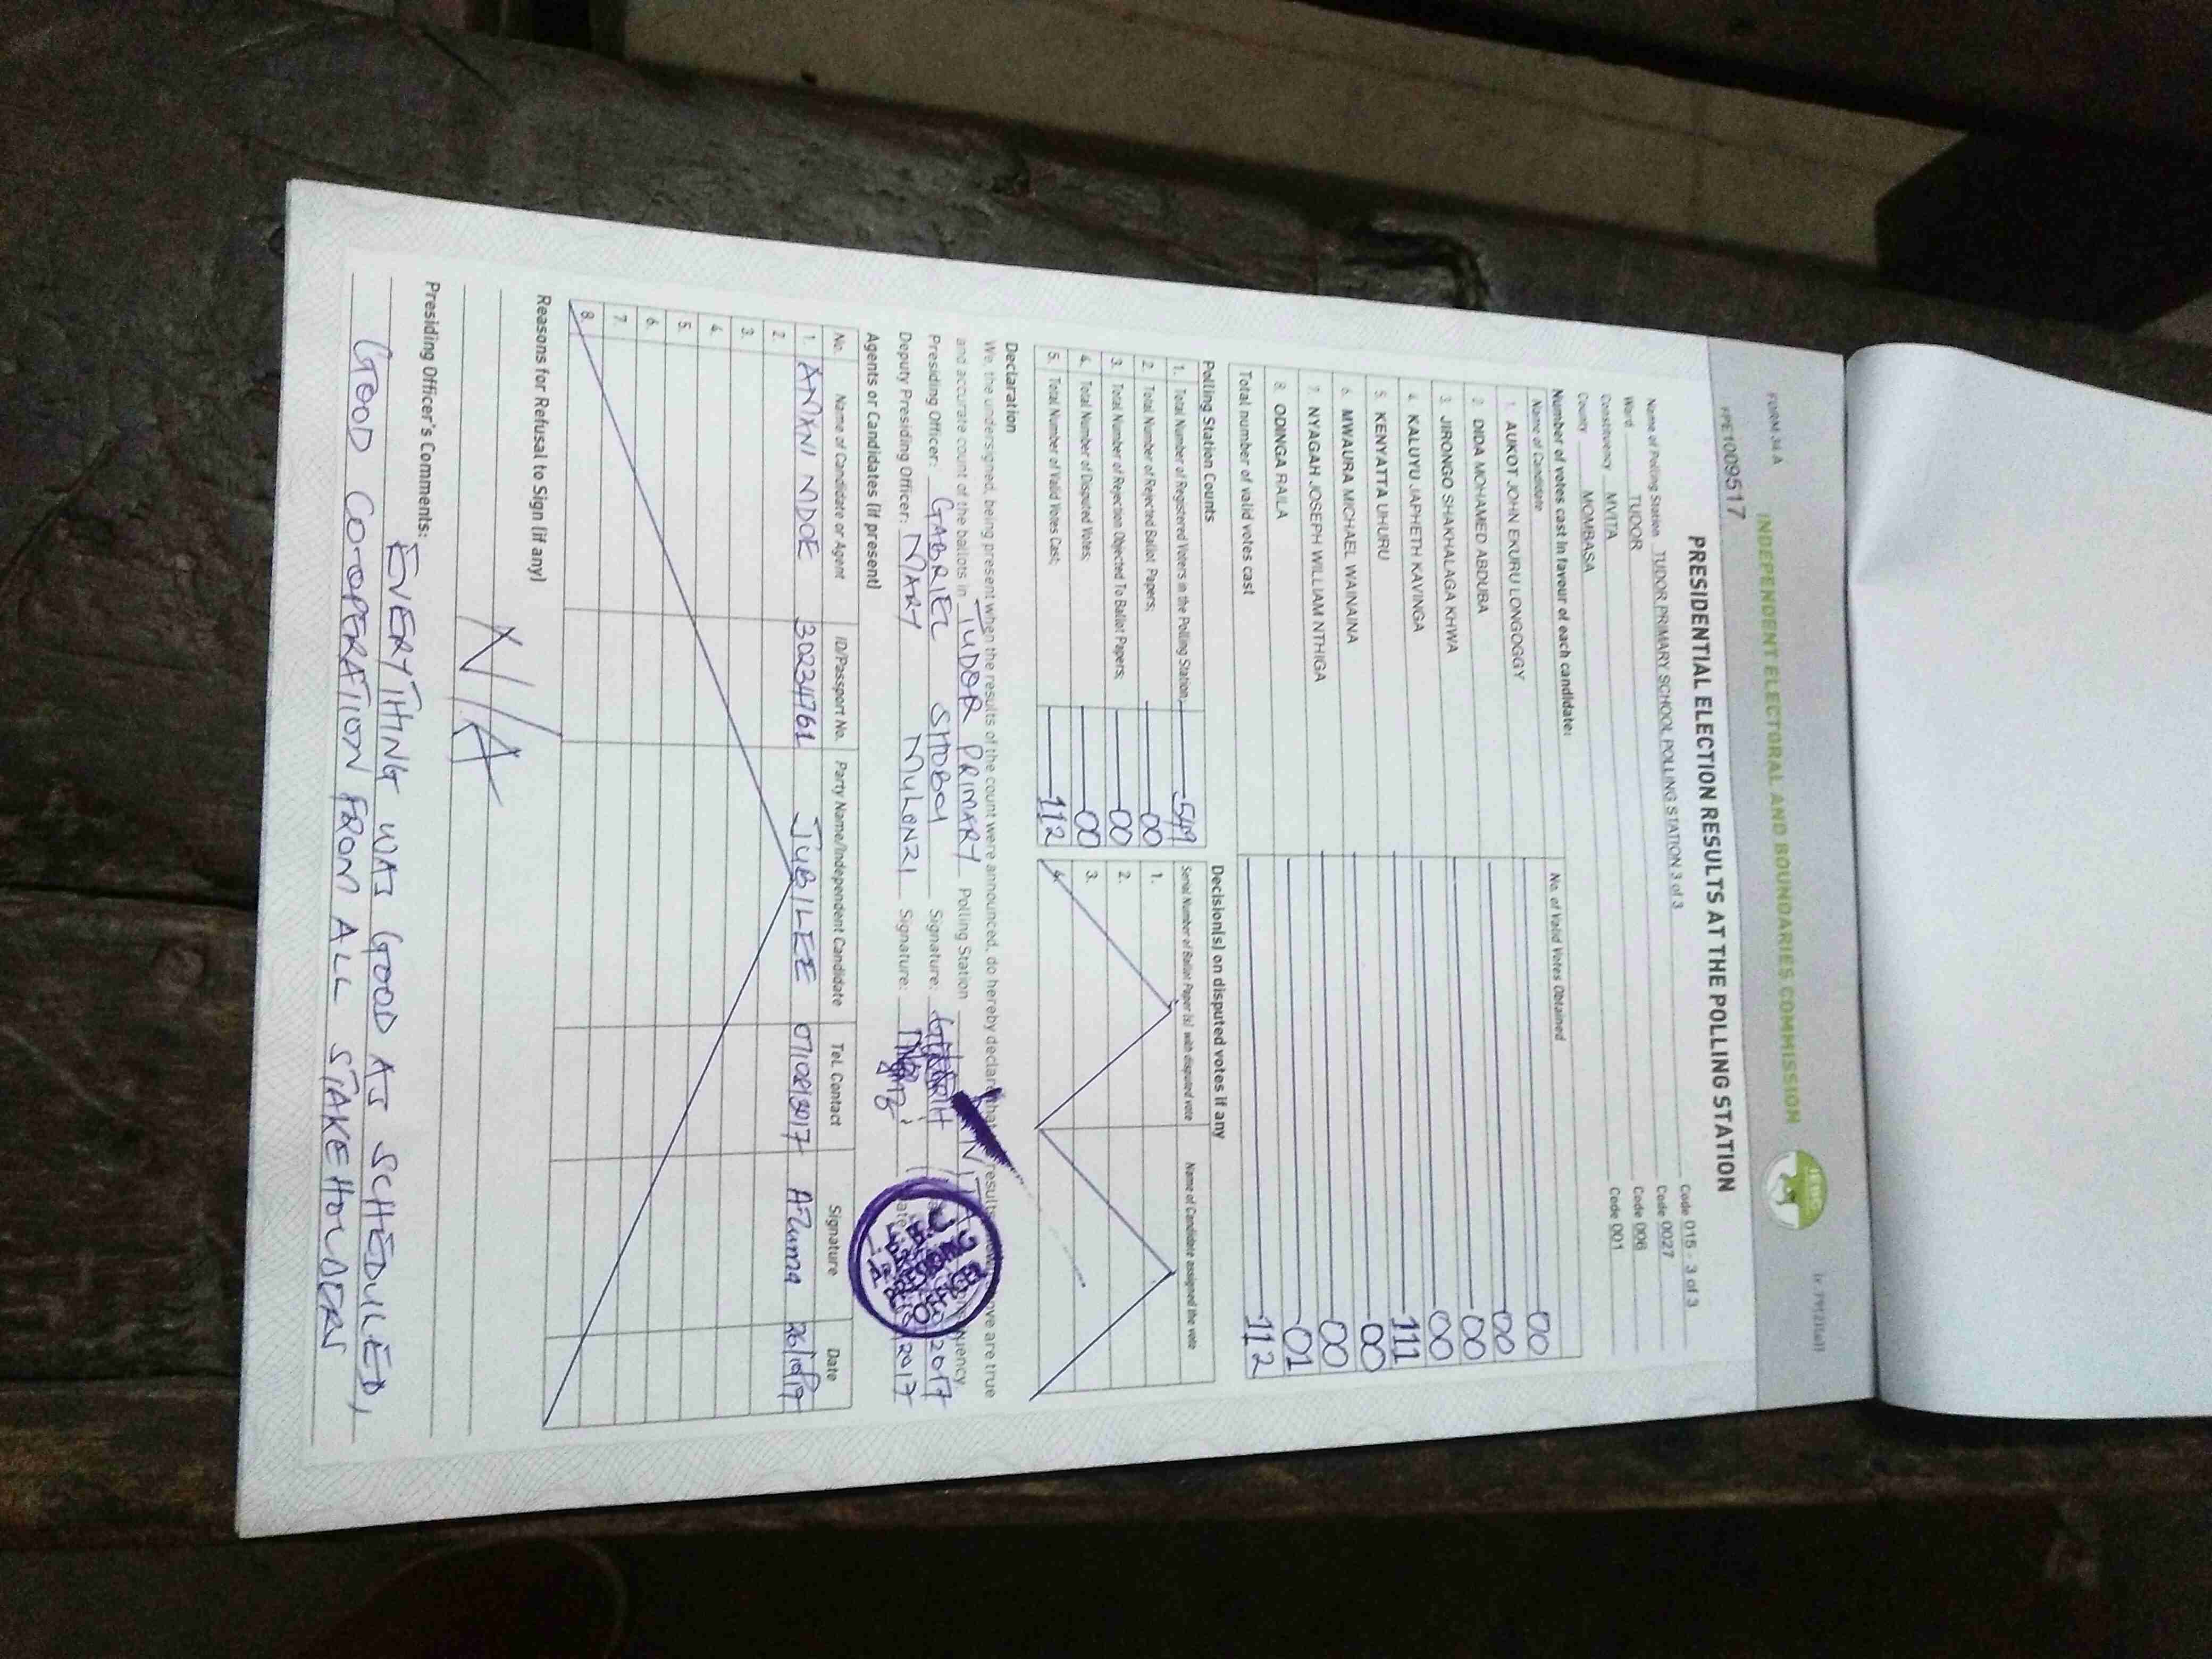 FORM 34 A
INDEPENDENT ELECTORAL AND BOUNDARIES COMMISSION
PPE1009517
PRESIDENTIAL ELECTION RESULTS AT THE POLLING STATION
Name of Polling Station TUDOR PRIMARY SCHOOL POLLING STATION 3 of 3 Code 015 - 3 of 3
Ward TUDOR Code 0027
Constituency MVITA Code 006
County MOMBASA Code 001
Number of votes cast in favour of each candidate:
Name of Candidate No. of Valid Votes Obtained
1. AUKOT JOHN EKURU LONGOGGY 00
2. DIDA MOHAMED ABDUBA 00
3. JIRONGO SHAKHALAGA KHWA 00
4. KALUYU JAPHETH KAVINGA 00
5. KENYATTA UHURU 111
6. MWAURA MICHAEL WAINAINA 00
7. NYAGAH JOSEPH WILLIAM NTHIGA 00
8. ODINGA RAILA 01
Total number of valid votes cast 112
Polling Station Counts
1. Total Number of Registered Voters in the Polling Station; 549
2. Total Number of Rejected Ballot Papers; 00
3. Total Number of Rejection Objected To Ballot Papers; 00
4. Total Number of Disputed Votes; 00
5. Total Number of Valid Votes Cast; 112
Decision(s) on disputed votes if any
Serial Number of Ballot Paper (s) with disputed vote Name of Candidate assigned the vote
1.
2.
3.
4.
Declaration
We, the undersigned, being present when the results of the count were announced, do hereby declare that results above are true
and accurate count of the ballots in TUDOR PRIMARY Polling Station
Presiding Officer: GABRIEL Signature: 2017
Deputy Presiding Officer: MARY Signature: 2017
Agents or Candidates (if present)
No. Name of Candidate or Agent ID/Passport No. Party Name/Independent Candidate Tel. Contact Signature Date
1. AMANI NDOE 30234761 JUBILEE 0710813017 26/10/17
2.
3.
4.
5.
6.
7.
8.
Reasons for Refusal to Sign (if any)
N/A
Presiding Officer's Comments:
EVERYTHING WAS GOOD AS SCHEDULED,
GOOD CO-OPERATION FROM ALL STAKEHOLDERS